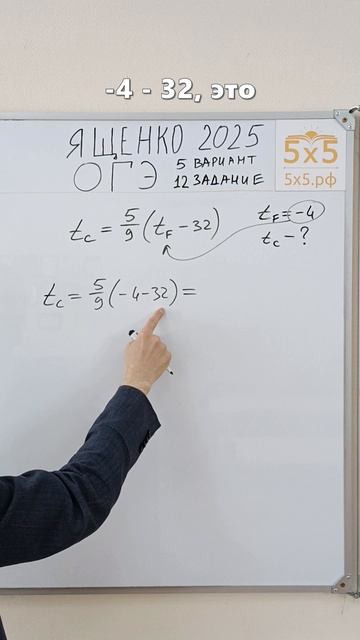 -4 - 32, это
ЯЩЕНКО 2025
ОГЭ 5 ВАРИАНТ
12 ЗАДАНИЕ
5х5
5х5.рф
t_C = 5/9 (t_F - 32)
t_F = -4
t_C - ?
t_C = 5/9 (-4-32) =